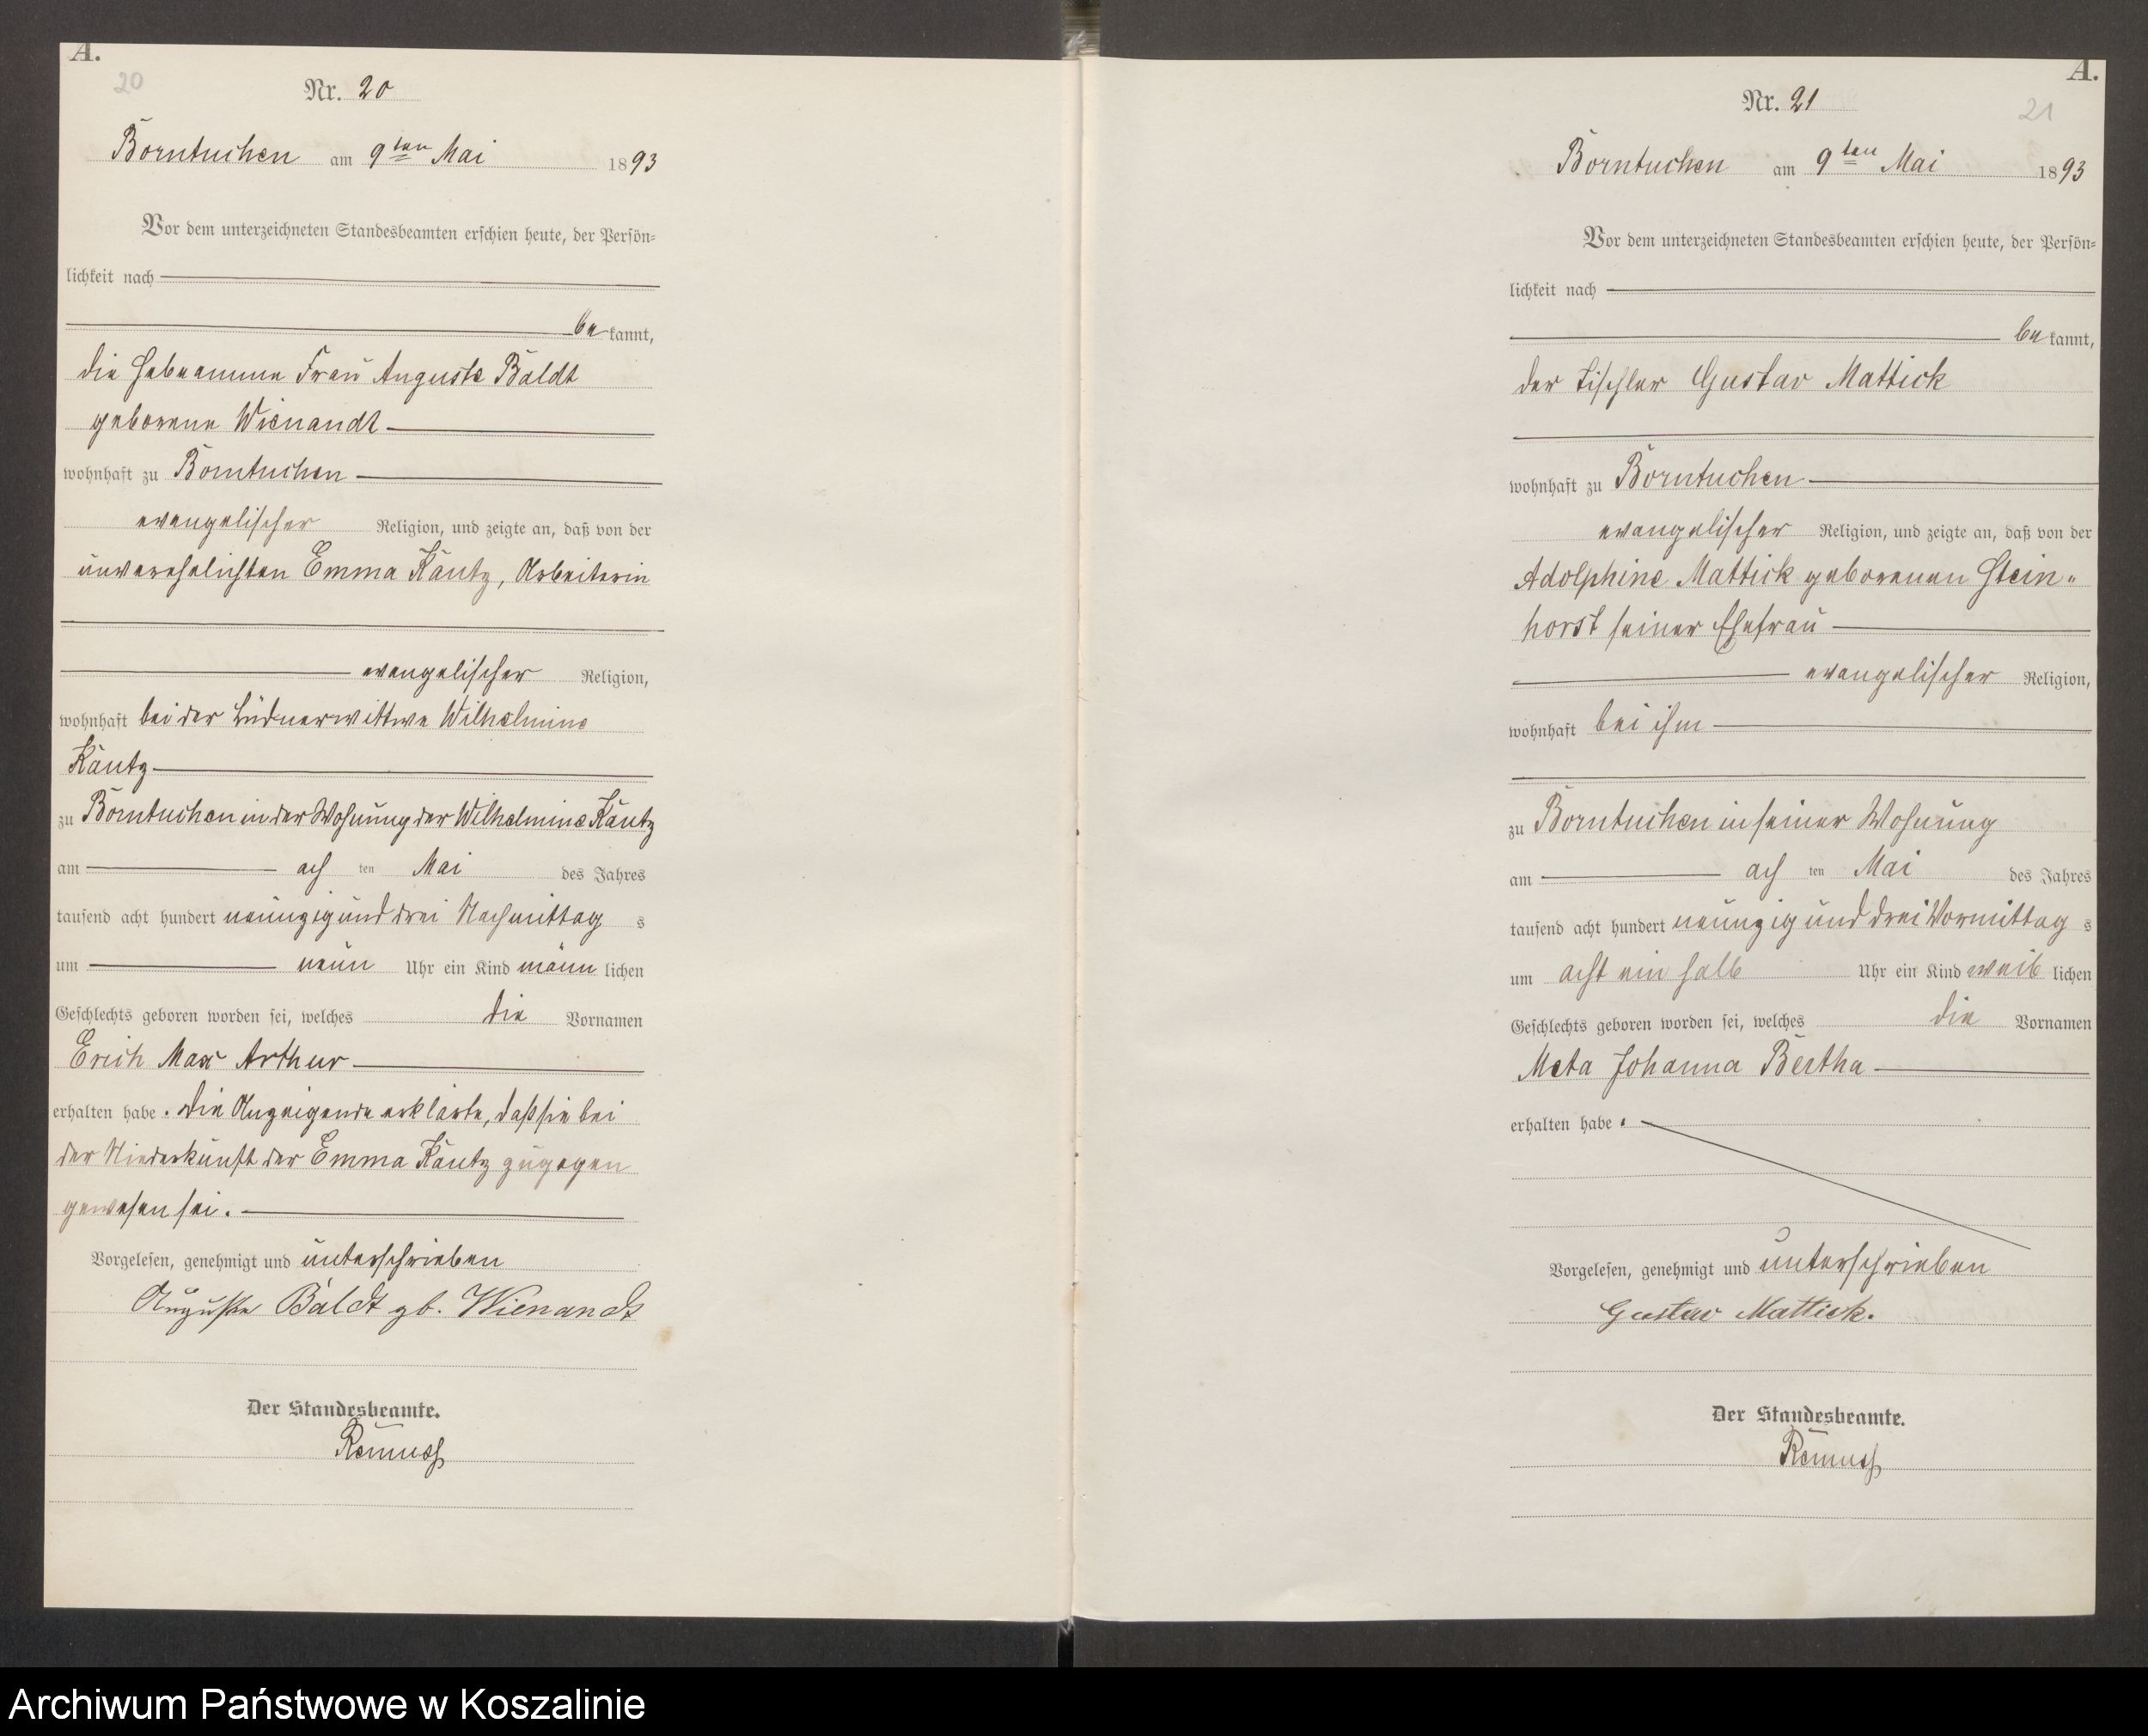 A.
20
Nr. 20
Borntuchen am 9ten Mai 1893
Vor dem unterzeichneten Standesbeamten erschien heute, der Persön-
lichkeit nach
bekannt,
die Hebeamme Frau Auguste Baldt
geborene Wienandt
wohnhaft zu Borntuchen
evangelischer Religion, und zeigte an, daß von der
unverehelichten Emma Kautz, Arbeiterin
evangelischer Religion,
wohnhaft bei der Büdnerwittwe Wilhelmine
Kautz
zu Borntuchen in der Wohnung der Wilhelmine Kautz
am achten Mai des Jahres
tausend acht hundert neunzig und drei Nachmittags
um neun Uhr ein Kind männlichen
Geschlechts geboren worden sei, welches die Vornamen
Erich Max Arthur
erhalten habe. Die Anzeigende erklärte, daß sie bei
der Niederkunft der Emma Kautz zugegen
gewesen sei.
Vorgelesen, genehmigt und unterschrieben
Auguste Baldt gb. Wienandt
Der Standesbeamte.
Remuß
A.
21
Nr. 21
Borntuchen am 9ten Mai 1893
Vor dem unterzeichneten Standesbeamten erschien heute, der Persön-
lichkeit nach
bekannt,
der Tischler Gustav Mattick
wohnhaft zu Borntuchen
evangelischer Religion, und zeigte an, daß von der
Adolphine Mattick geborenen Stein-
horst seiner Ehefrau
evangelischer Religion,
wohnhaft bei ihm
zu Borntuchen in seiner Wohnung
am achten Mai des Jahres
tausend acht hundert neunzig und drei Vormittags
um acht ein halb Uhr ein Kind weiblichen
Geschlechts geboren worden sei, welches die Vornamen
Meta Johanna Bertha
erhalten habe.
Vorgelesen, genehmigt und unterschrieben
Gustav Mattick.
Der Standesbeamte.
Remuß
Archiwum Państwowe w Koszalinie